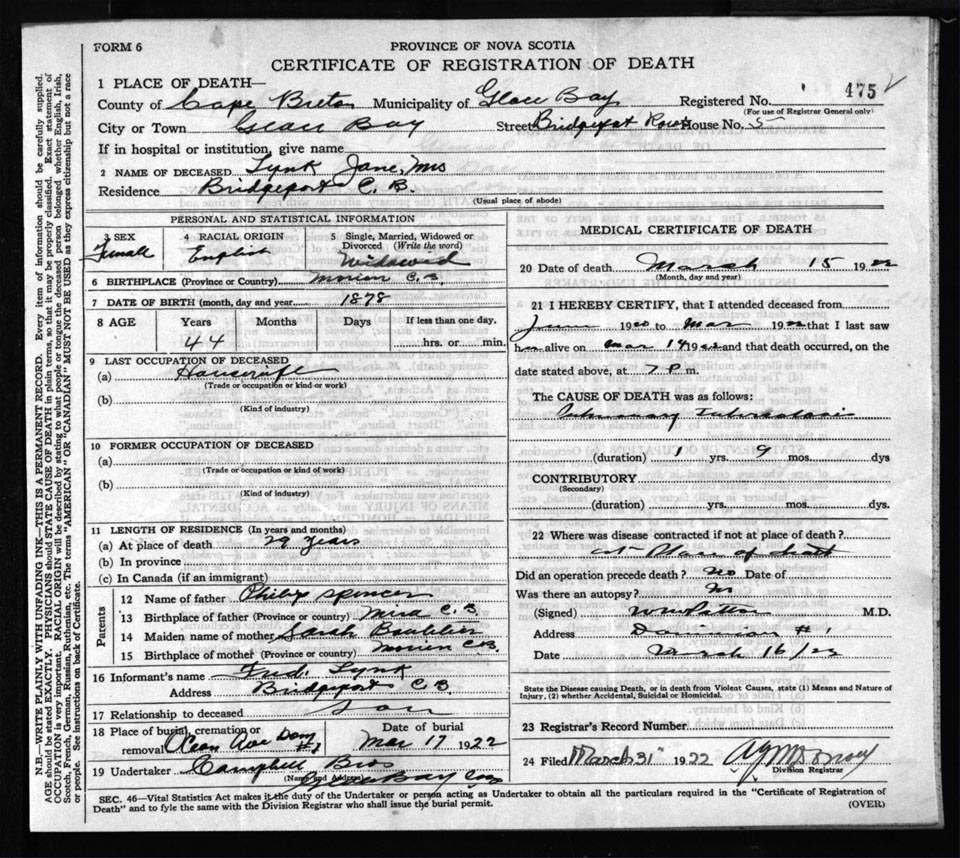 FORM 6
PROVINCE OF NOVA SCOTIA
CERTIFICATE OF REGISTRATION OF DEATH
1 PLACE OF DEATH—
County of Cape Breton Municipality of Glace Bay Registered No. 475
(For use of Registrar General only)
City or Town Glace Bay Street Bridgeport Rows House No. 5
If in hospital or institution, give name
2 NAME OF DECEASED Lynk Jane, Mrs
Residence Bridgeport C. B.
(Usual place of abode)
PERSONAL AND STATISTICAL INFORMATION
3 SEX Female
4 RACIAL ORIGIN English
5 Single, Married, Widowed or Divorced (Write the word) Widowed
6 BIRTHPLACE (Province or Country) Morien C.B.
7 DATE OF BIRTH (month, day and year) 1878
8 AGE Years Months Days If less than one day,
44 hrs. or min.
9 LAST OCCUPATION OF DECEASED
(a) Housewife
(Trade or occupation or kind or work)
(b)
(Kind of industry)
10 FORMER OCCUPATION OF DECEASED
(a)
(Trade or occupation or kind of work)
(b)
(Kind of industry)
11 LENGTH OF RESIDENCE (In years and months)
(a) At place of death 29 years
(b) In province
(c) In Canada (if an immigrant)
Parents
12 Name of father Philip Spencer
13 Birthplace of father (Province or country) Mira C.B.
14 Maiden name of mother Sarah
15 Birthplace of mother (Province or country) Morien C.B.
16 Informant's name Fred Lynk
Address Bridgeport C.B.
17 Relationship to deceased Son
18 Place of burial, cremation or removal
Date of burial
Mar 17 1922
19 Undertaker Campbell Bros
Glace Bay
MEDICAL CERTIFICATE OF DEATH
20 Date of death March 15 1922
(Month, day and year)
21 I HEREBY CERTIFY, that I attended deceased from
June 1920 to Mar 1922 that I last saw
her alive on Mar 14 1922 and that death occurred, on the
date stated above, at 7 P.m.
The CAUSE OF DEATH was as follows:
Pulmonary Tuberculosis
(duration) 1 yrs. 9 mos. dys
CONTRIBUTORY
(Secondary)
(duration) yrs. mos. dys
22 Where was disease contracted if not at place of death?
at Place of death
Did an operation precede death? No Date of
Was there an autopsy? No
(Signed) M.D.
Address Dominion #1
Date March 16/22
State the Disease causing Death, or in death from Violent Causes, state (1) Means and Nature of
Injury, (2) whether Accidental, Suicidal or Homicidal.
23 Registrar's Record Number
24 Filed March 31st 1922
Division Registrar
SEC. 46—Vital Statistics Act makes it the duty of the Undertaker or person acting as Undertaker to obtain all the particulars required in the "Certificate of Registration of
Death" and to fyle the same with the Division Registrar who shall issue the burial permit.
(OVER)
N.B.—WRITE PLAINLY WITH UNFADING INK—THIS IS A PERMANENT RECORD. Every item of information should be carefully supplied.
AGE should be stated EXACTLY. PHYSICIANS should STATE CAUSE OF DEATH in plain terms, so that it may be properly classified. Exact statement of
OCCUPATION is very important. RACIAL ORIGIN will be described by stating to what people or tongue the deceased person belonged whether English, Irish,
Scotch, French, German, Russian, Ruthenian, etc. The terms "AMERICAN" OR "CANADIAN" MUST NOT BE USED as they express citizenship but not a race
or people. See instructions on back of Certificate.